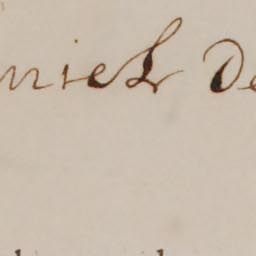 niel De